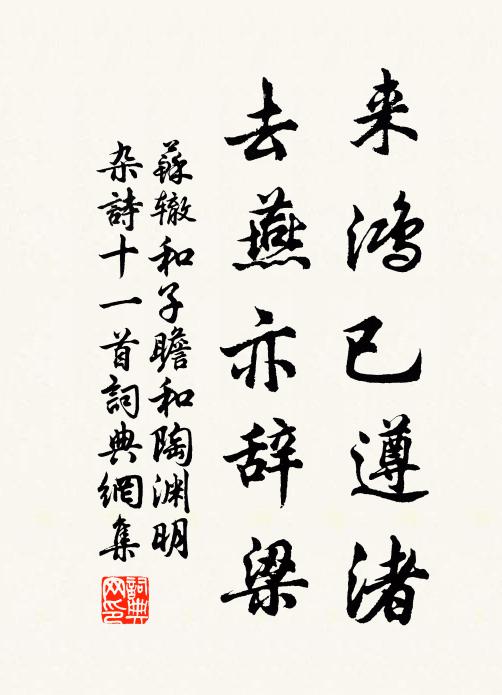 来鸿已遵渚
去燕亦辞梁
蘇辙和子瞻和陶渊明
杂詩十一首詞典網集
詞典
网印